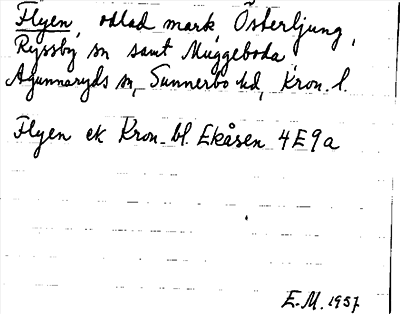 Flyen, odlad mark, Österljung,
Ryssby sn samt Muggeboda,
Agunnaryds sn, Sunnerbo hd, Kron. l.
Flyen ek Kron. bl. Ekåsen 4E9a
E.M. 1957